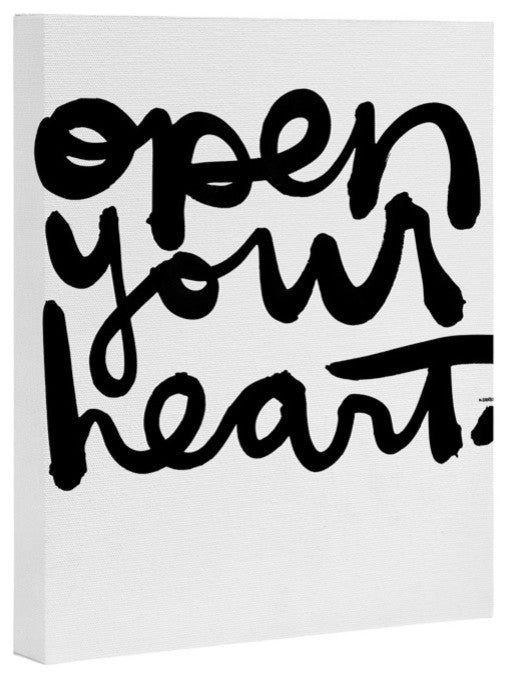 open
your
heart.